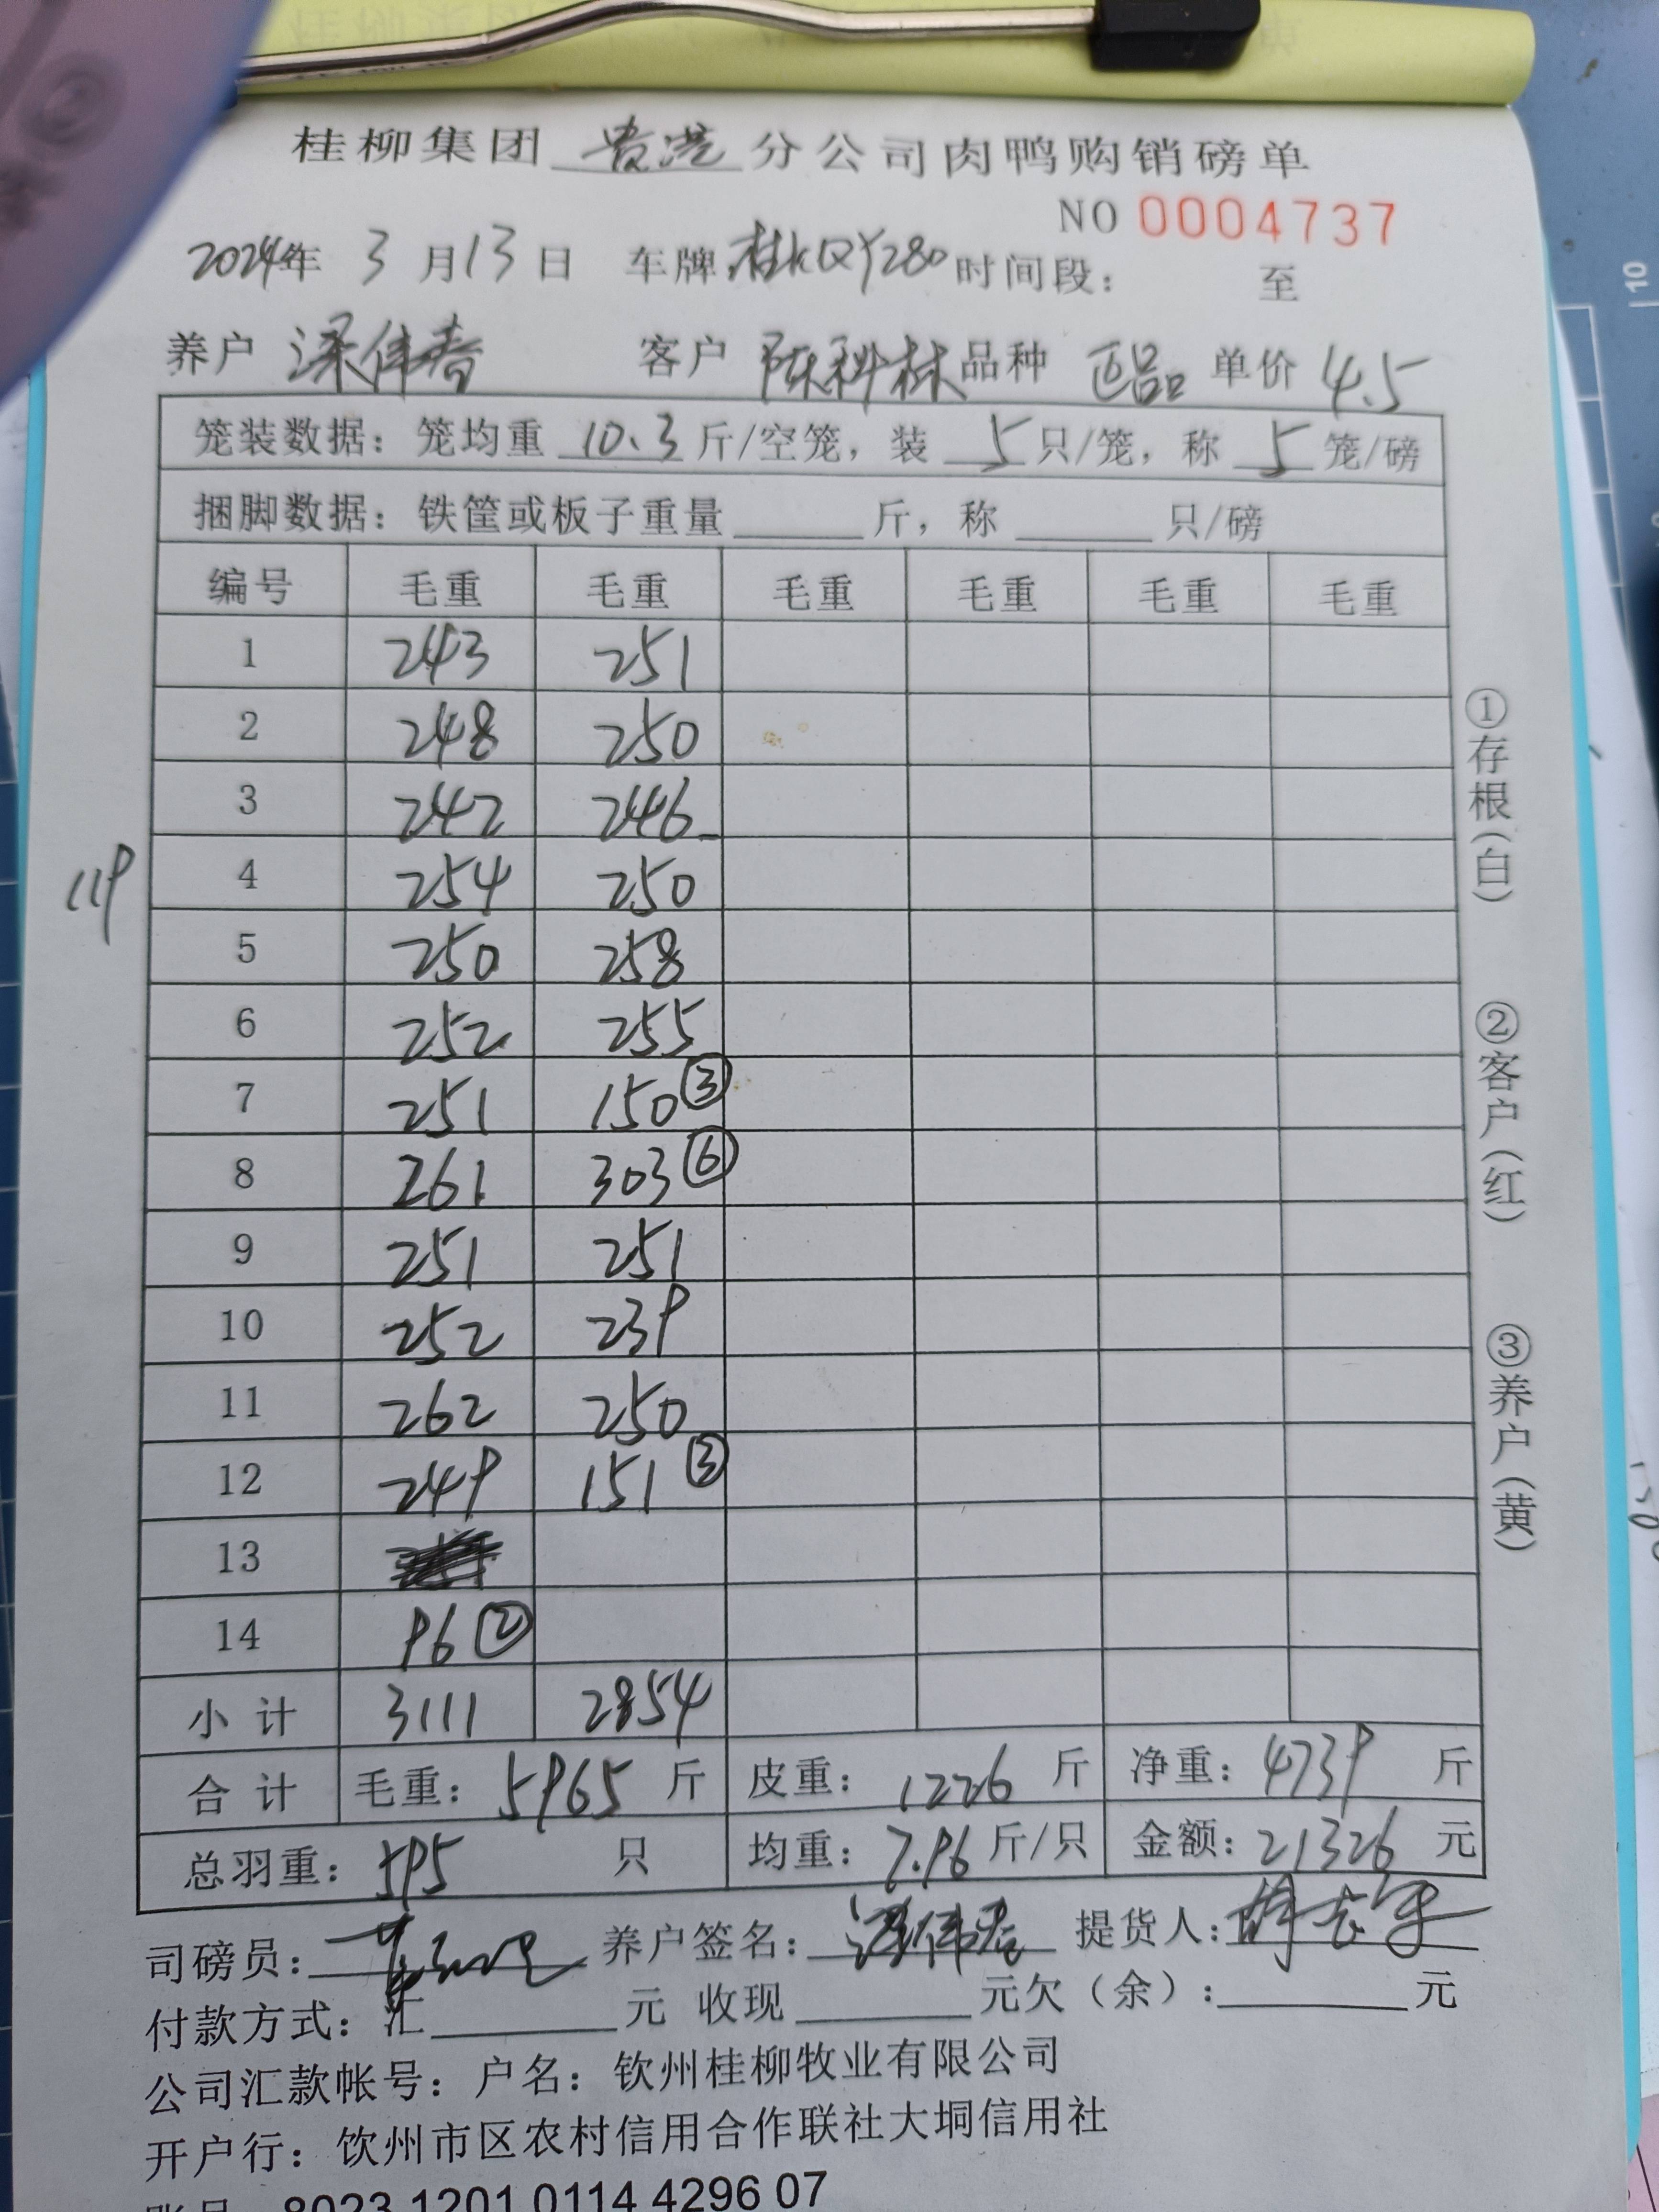 桂柳集团 贵港 分公司肉鸭购销磅单
NO 0004737
2024年 3 月 13 日 车牌 桂KQY280 时间段： 至
养户 梁伟春 客户 陈科林 品种 正品 单价 4.5
笼装数据：笼均重 10.3 斤/空笼，装 5 只/笼，称 5 笼/磅
捆脚数据：铁筐或板子重量 斤，称 只/磅
编号 毛重 毛重 毛重 毛重 毛重 毛重
1 243 251
2 248 250
3 242 246
119
4 254 250
5 250 258
6 252 255
7 251 150 ③
8 261 303 ⑥
9 251 251
10 252 239
11 262 250
12 249 151 ③
13
14 96 ②
小计 3111 2854
合计 毛重：5965 斤 皮重：1226 斤 净重：4739 斤
总羽重：595 只 均重：7.96 斤/只 金额：21326 元
司磅员： 养户签名：梁伟春 提货人：
付款方式：汇 元 收现 元欠（余）： 元
公司汇款帐号：户名：钦州桂柳牧业有限公司
开户行：钦州市区农村信用合作联社大垌信用社
8023 1201 0114 4296 07
①存根（白）
②客户（红）
③养户（黄）